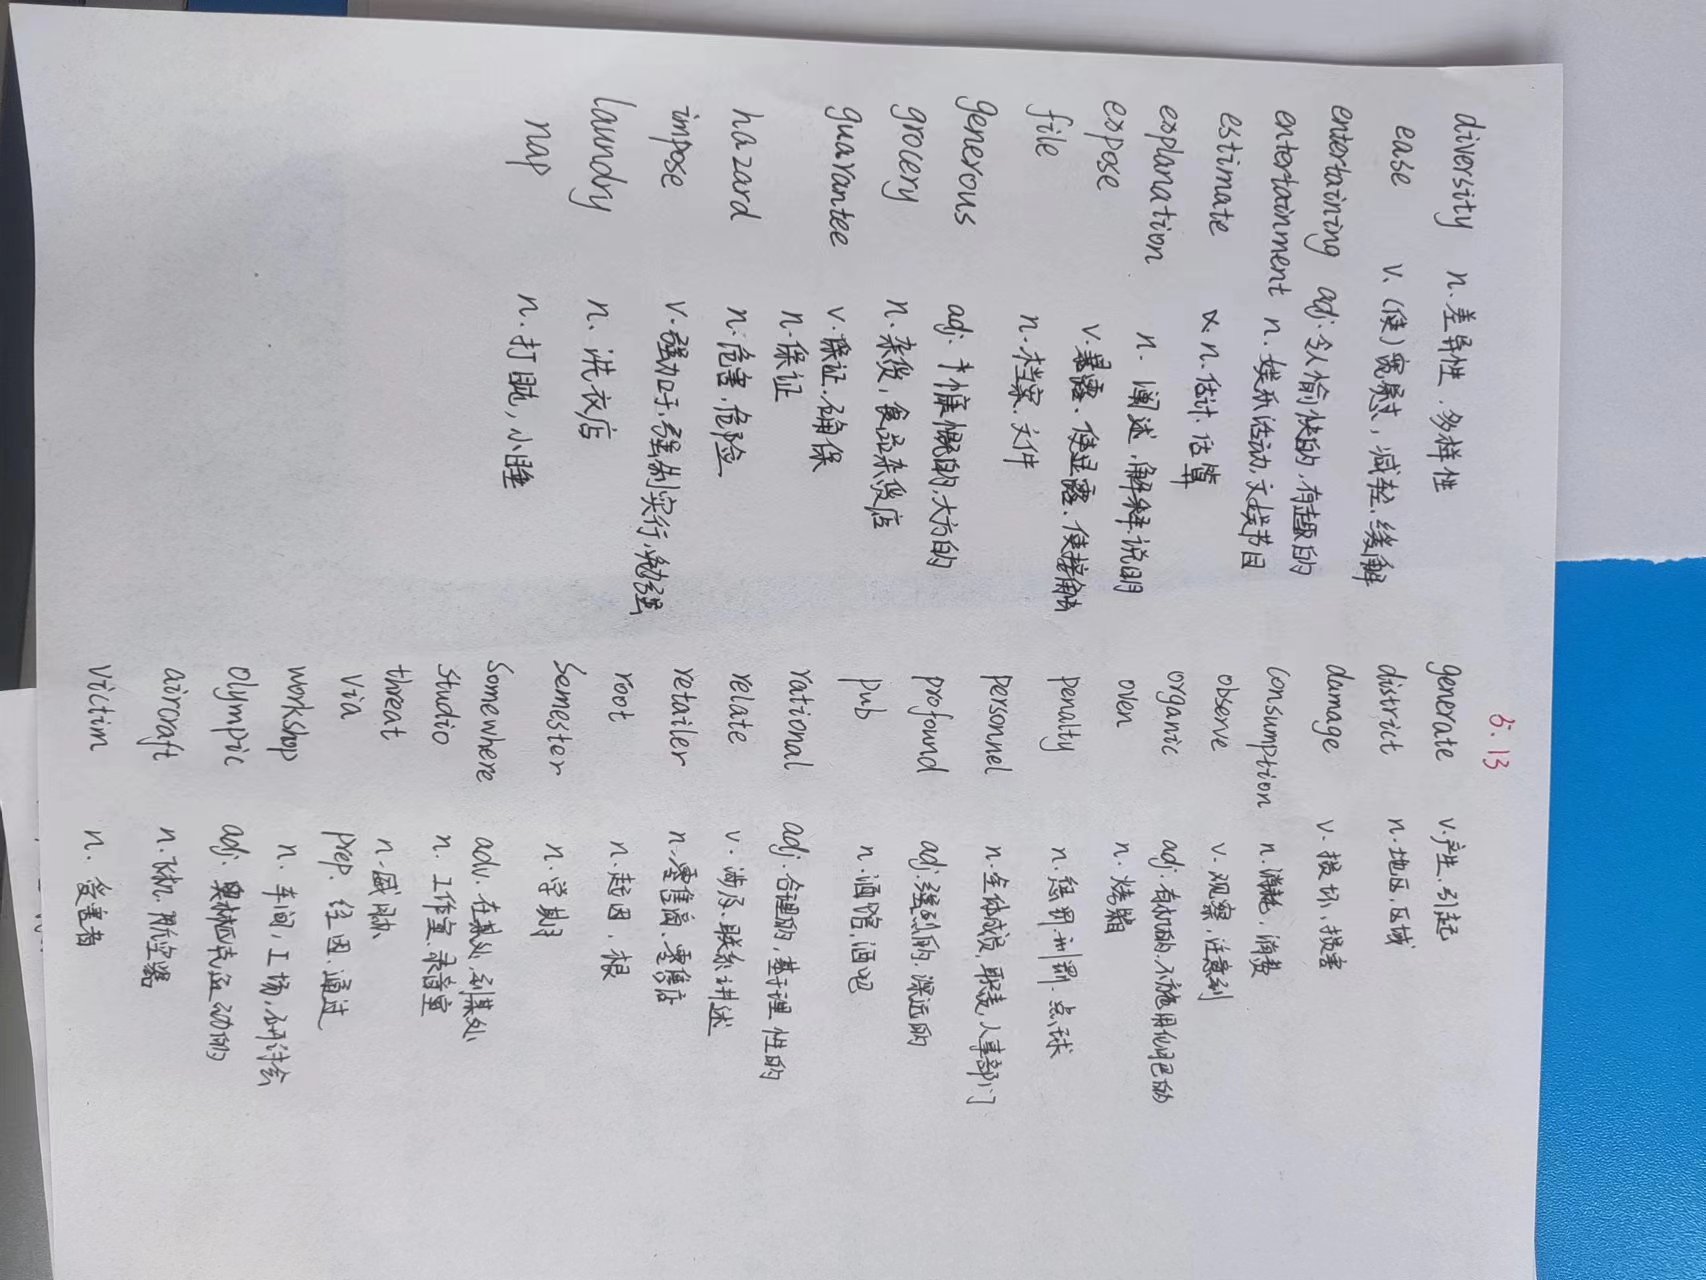 5.13
diversity n. 差异性、多样性
ease v. (使)宽慰, 减轻、缓解
entertaining adj. 令人愉快的, 有趣的
entertainment n. 娱乐活动, 文娱节目
estimate n. 估计、估算
explanation n. 阐述、解释、说明
expose v. 暴露、使显露、使接触
file n. 档案、文件
generous adj. 慷慨的, 大方的
grocery n. 杂货, 食品杂货店
guarantee v. 保证、确保
n. 保证
hazard n. 危害、危险
impose v. 强加于, 强制实行, 勉强
laundry n. 洗衣店
nap n. 打盹, 小睡
generate v. 产生、引起
district n. 地区、区域
damage v. 损坏、损害
consumption n. 消耗、消费
observe v. 观察、注意到
organic adj. 有机的、不施用化肥的
oven n. 烤箱
penalty n. 惩罚、刑罚、点球
personnel n. 全体成员, 职责, 人事部门
profound adj. 强烈的、深远的
pub n. 酒馆, 酒吧
rational adj. 合理的, 基于理性的
relate v. 涉及、联系、讲述
retailer n. 零售商、零售店
root n. 起因、根
semester n. 学期
somewhere adv. 在某处, 到某处
studio n. 工作室、录音室
threat n. 威胁
via prep. 经因、通过
workshop n. 车间, 工场, 研讨会
olympic adj. 奥林匹克运动的
aircraft n. 飞机、航空器
victim n. 受害者